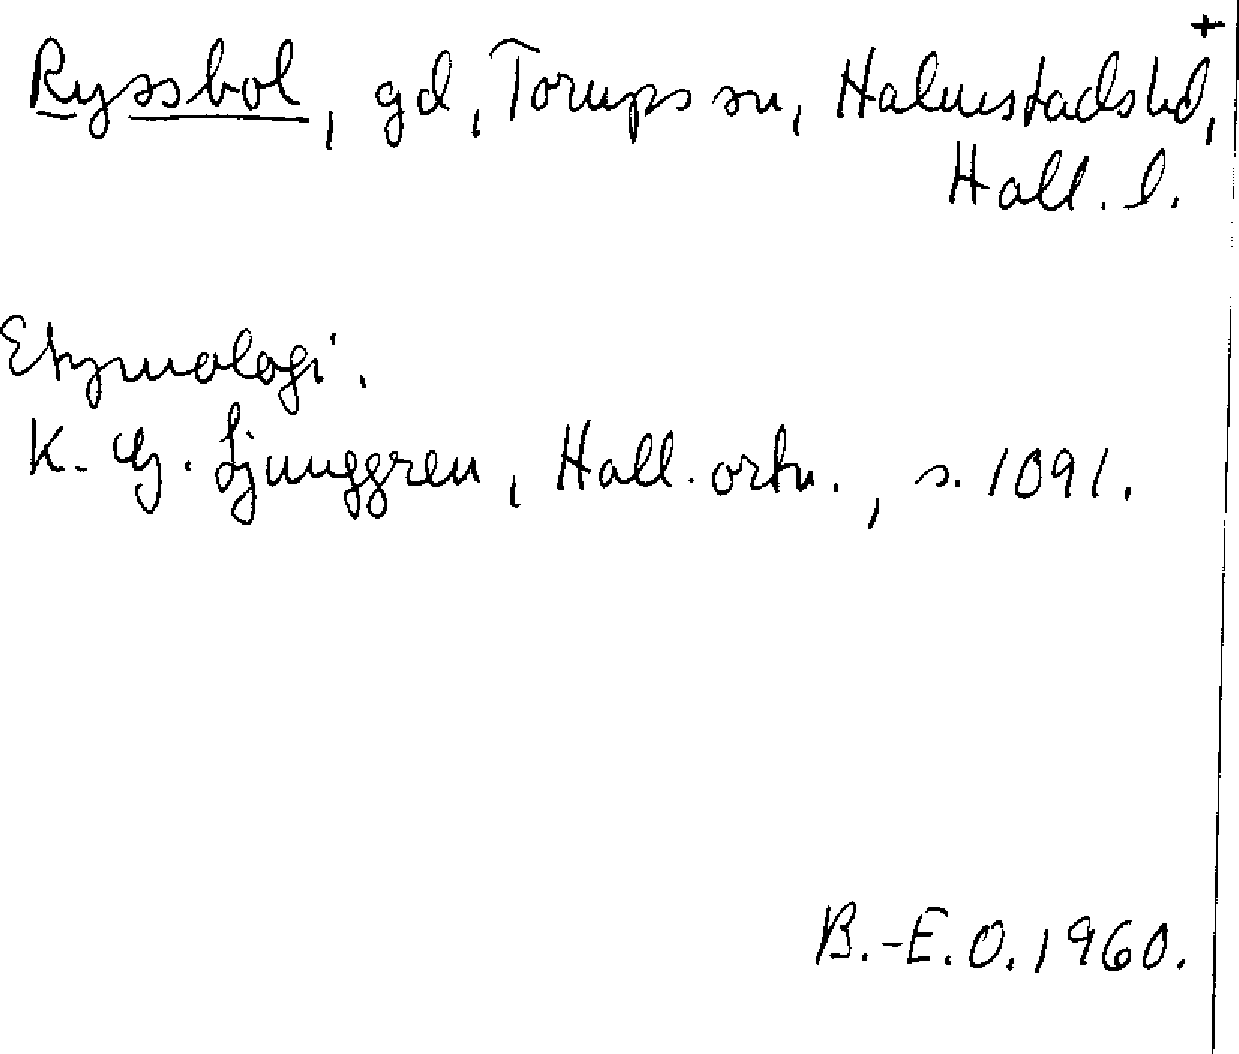 +
Ryssbol, gd, Torups sn, Halmstads hd,
Hall. l.
Etymologi.
K. G. Ljunggren, Hall. ortn., s. 1091.
B.-E.O. 1960.